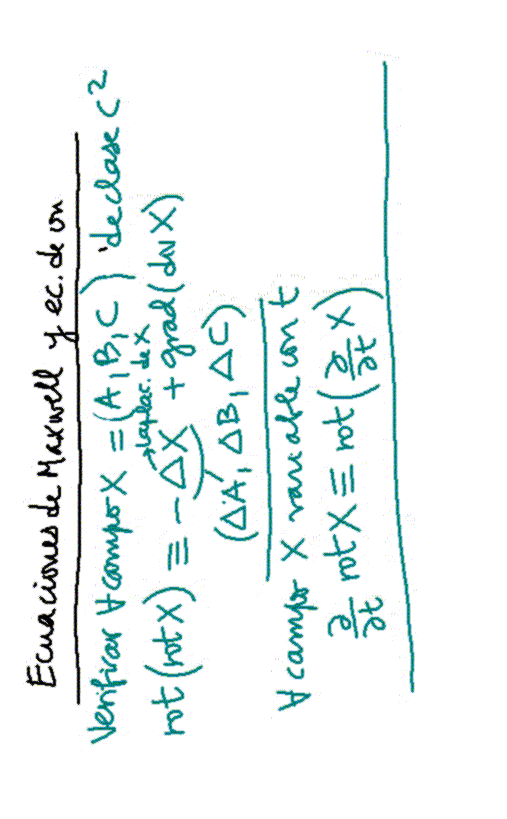 Ecuaciones de Maxwell y ec. de on
Verificar ∀ campo X = (A, B, C) de clase C²
→ laplac. de X
rot (rot X) ≡ - ΔX + grad (div X)
(ΔA, ΔB, ΔC)
∀ campo X variable con t
∂/∂t rot X ≡ rot (∂/∂t X)